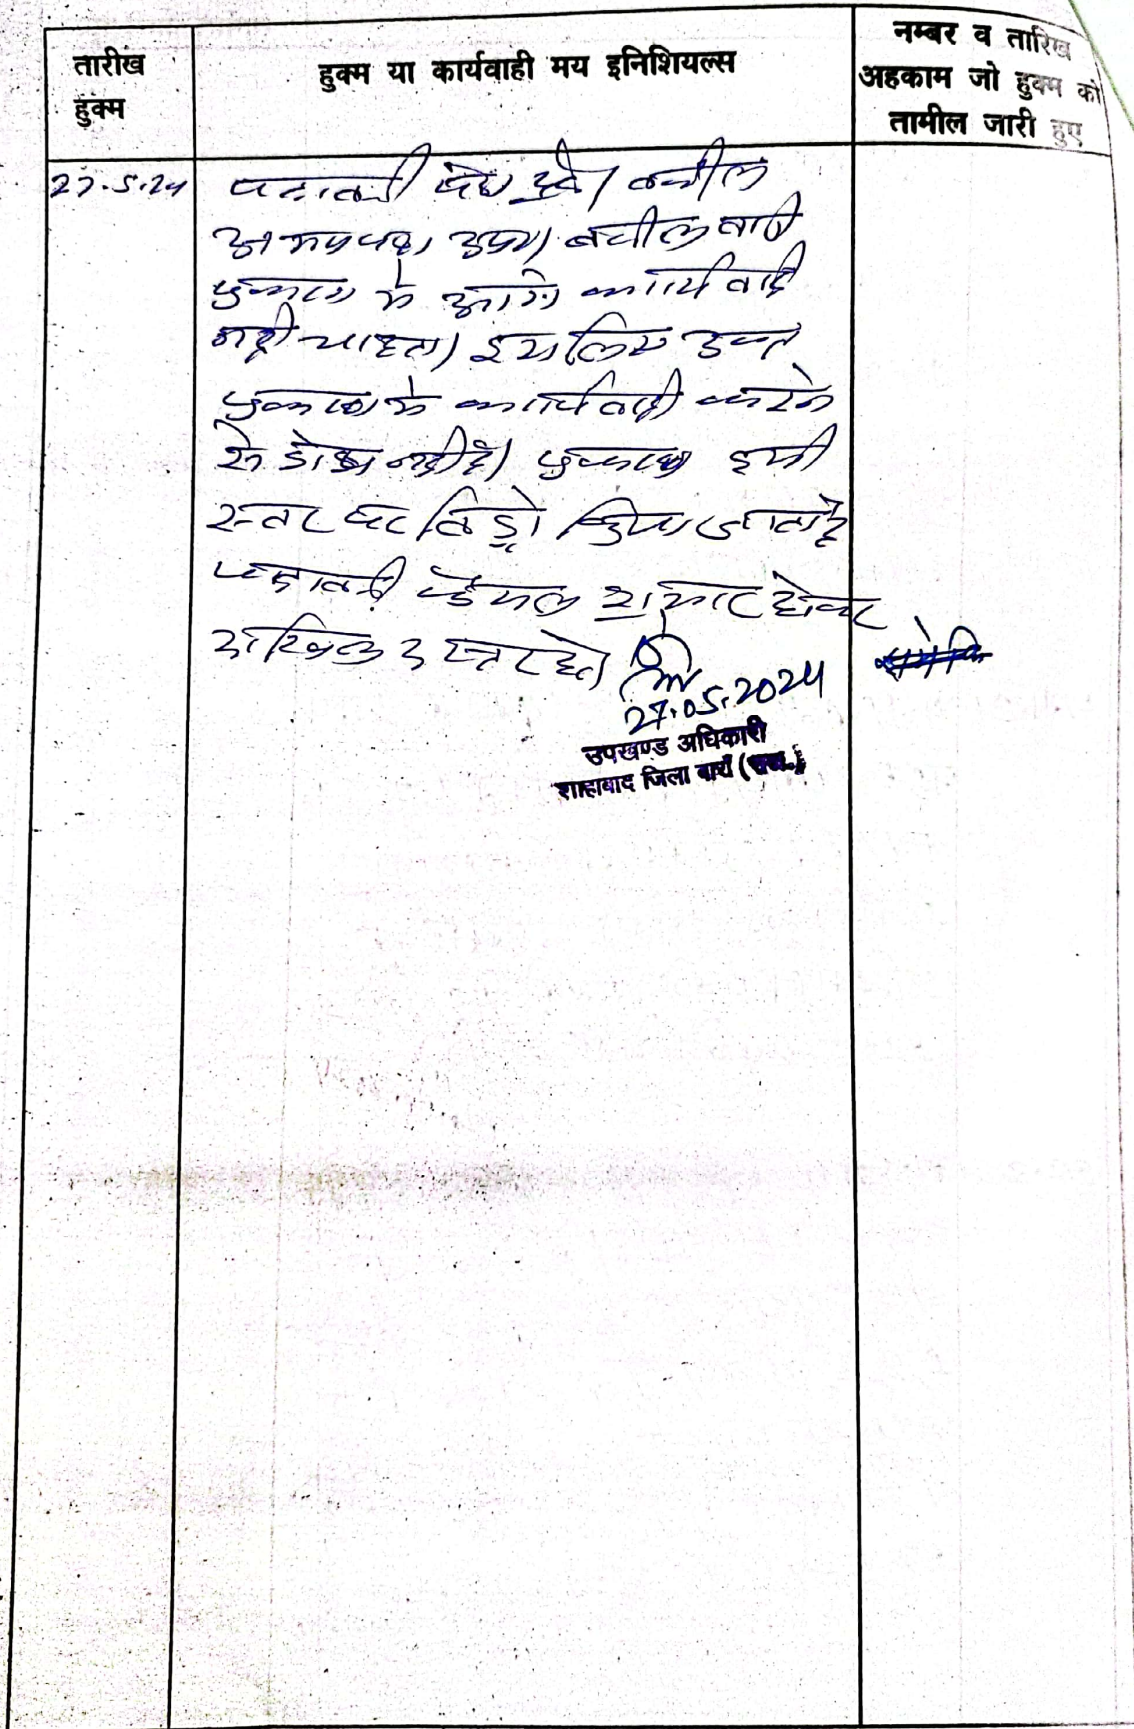 तारीख
हुक्म
हुक्म या कार्यवाही मय इनिशियल्स
नम्बर व तारिख
अहकाम जो हुक्म की
तामील जारी हुए
27.5.24
पत्रावली पेश हुई। वकील
उभयपक्ष उप०। वकील वादी
प्रकरण में आगे कार्यवाही
नही चाहता। इसलिए उक्त
प्रकरण में कार्यवाही करने
नही है। प्रकरण इसी
स्तर पर किया जाता है
पत्रावली फैसल शुमार होकर
दाखिल दफ्तर हो।
27.05.2024
उपखण्ड अधिकारी
शाहाबाद जिला बारां (राज.)